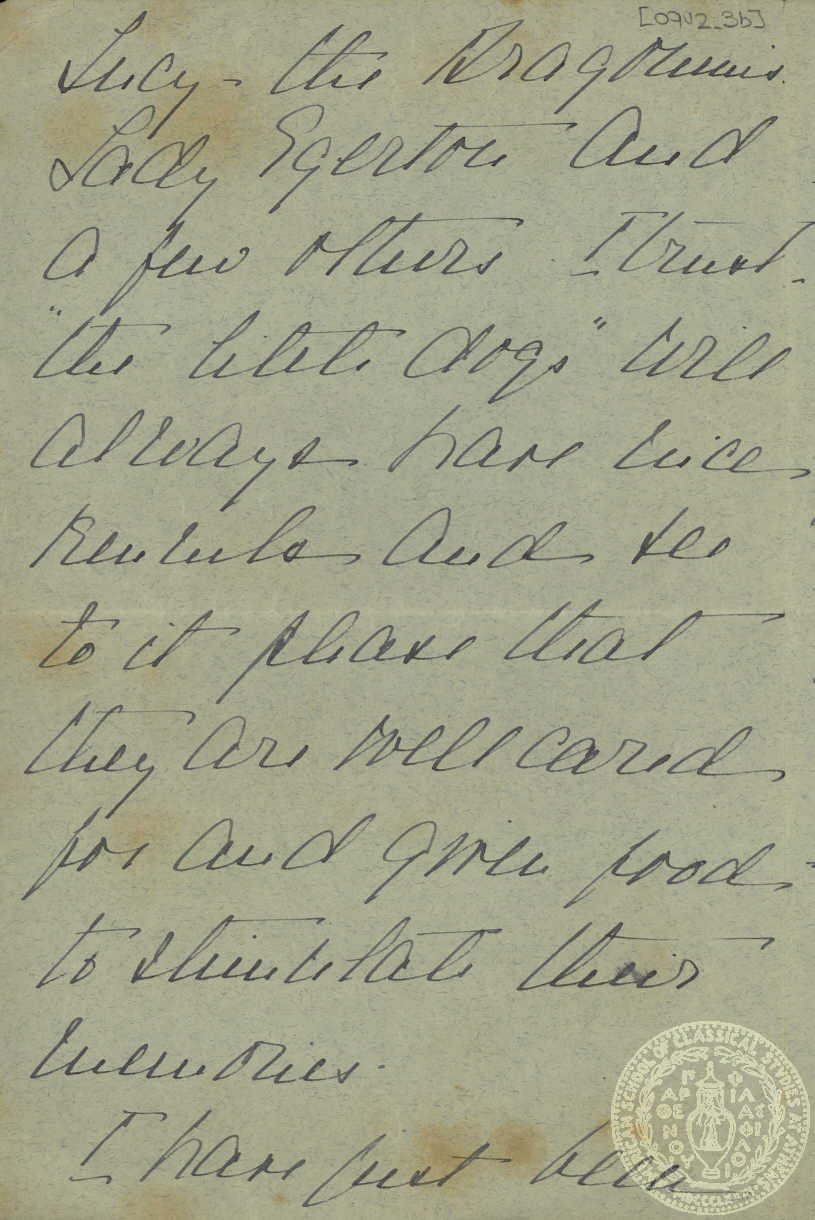 [09U2_3b]
Lucy - the Dragoumis
Lady Egerton and
a few others. I trust
"the little dogs" will
always have nice
kennels and see
to it please that
they are well cared
for and given food
to stimulate their
memories.
I have just been
AMERICAN SCHOOL OF CLASSICAL STUDIES AT ATHENS
ΠΑΡΘΕΝΟΥ ΦΙΛΑΣ ΦΙΛΟΙ
MDCCCLXXXI